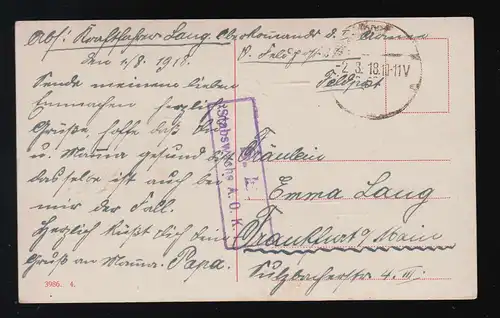 Abs: Kraftfahrer Lang. Oberkommando d.
Den 1/3. 1918.
-2.3.18.10-11V
Feldpost
Sende meinem lieben
Emmachen herzliche
Grüße, hoffe daß du
u. Mama gesund ist
dasselbe ist auch bei
mir der Fall.
Herzlich küßt dich dein
Papa.
Gruß an Mama.
Stabswache A. O. K.
Fräulein
Emma Lang
Frankfurt a/Main
Sulzbacherstr. 4. III.
3986. 4.